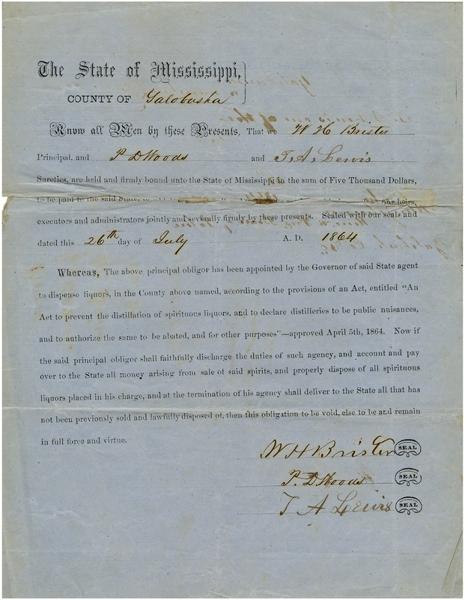 The State of Mississippi,
COUNTY OF Yalobusha
Know all Men by these Presents, That we W H Brister
Principal, and P. D Woods and T. A. Lewis
Sureties, are held and firmly bound unto the State of Mississippi in the sum of Five Thousand Dollars,
to be paid to the said State, our heirs,
executors and administrators jointly and severally firmly by these presents. Sealed with our seals and
dated this 26th day of July A. D. 1864
Whereas, The above principal obligor has been appointed by the Governor of said State agent
to dispense liquors, in the County above named, according to the provisions of an Act, entitled “An
Act to prevent the distillation of spirituous liquors, and to declare distilleries to be public nuisances,
and to authorize the same to be abated, and for other purposes”—approved April 5th, 1864. Now if
the said principal obligor shall faithfully discharge the duties of such agency, and account and pay
over to the State all money arising from sale of said spirits, and properly dispose of all spirituous
liquors placed in his charge, and at the termination of his agency shall deliver to the State all that has
not been previously sold and lawfully disposed of, then this obligation to be void, else to be and remain
in full force and virtue.
W H Brister SEAL
P. D Woods SEAL
T A Lewis SEAL